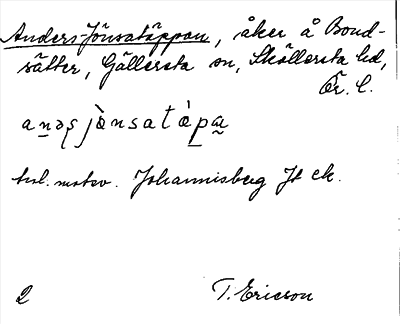 Anders-Jönsatäppan, åker å Bond-
sätter, Gällersta sn, Sköllersta hd,
Ör. l.
anəʂ jònsatɛ̀pa
enl. motsv. Johannisberg Jt ek.
2 T. Ericson